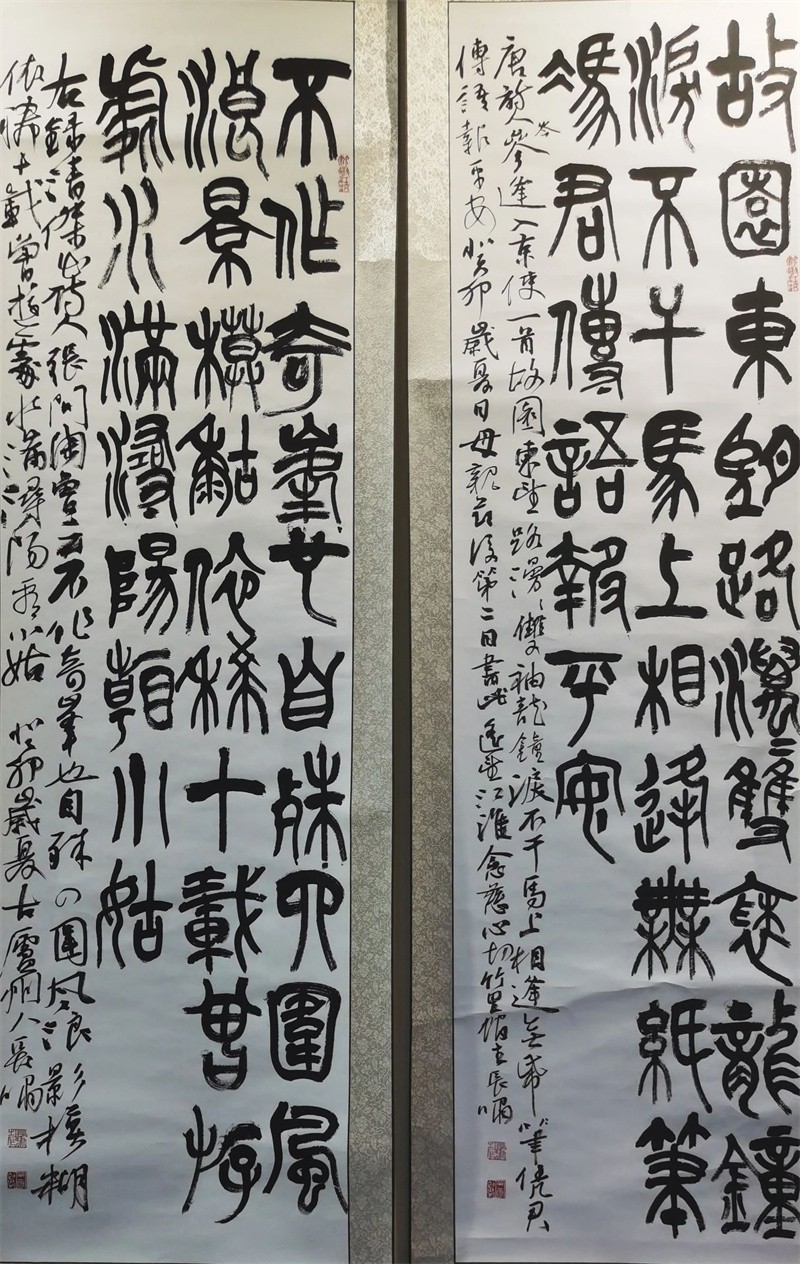 故園東望路漫〻雙袖龍鐘
淚不干馬上相逢無紙筆
憑君傳語報平安
唐詩人岑參逢入京使一首故園東望路漫〻雙袖龍鐘淚不干馬上相逢無紙筆憑君
傳語報平安癸卯歲夏日母親節後第二日書此遙望江淮念慈心切竹里館主長嘯
不作奇峯也自殊四圍風
浪景模黏依稀十載曾游
處水滿潯陽朝小姑
右錄清傑出詩人張問陶不作奇峯也自殊四圍風浪景模糊
依稀十載曾游處水滿潯陽小姑癸卯歲夏古廬州人長嘯